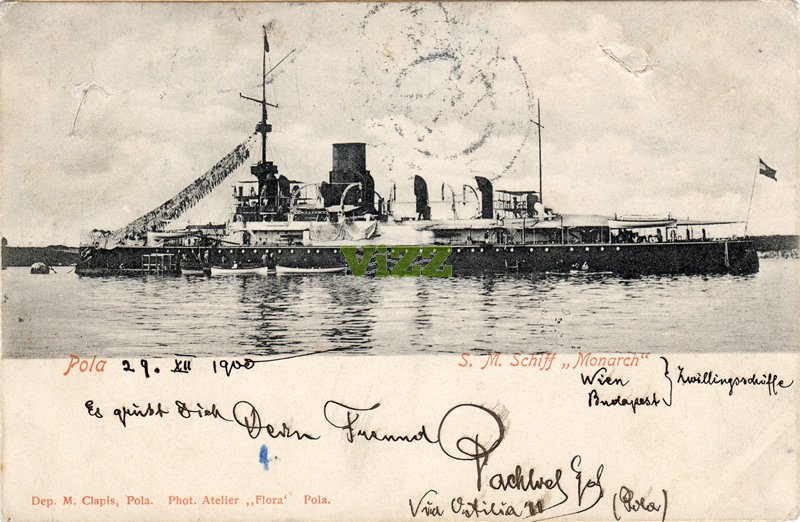 ViZZ
Pola 29. XII 1900
S. M. Schiff „Monarch"
Wien
Budapest } Zwillingsschiffe
Es grüßt Dich Dein Freund
Via Ostilia 11
(Pola)
Dep. M. Clapis, Pola. Phot. Atelier „Flora‘ Pola.